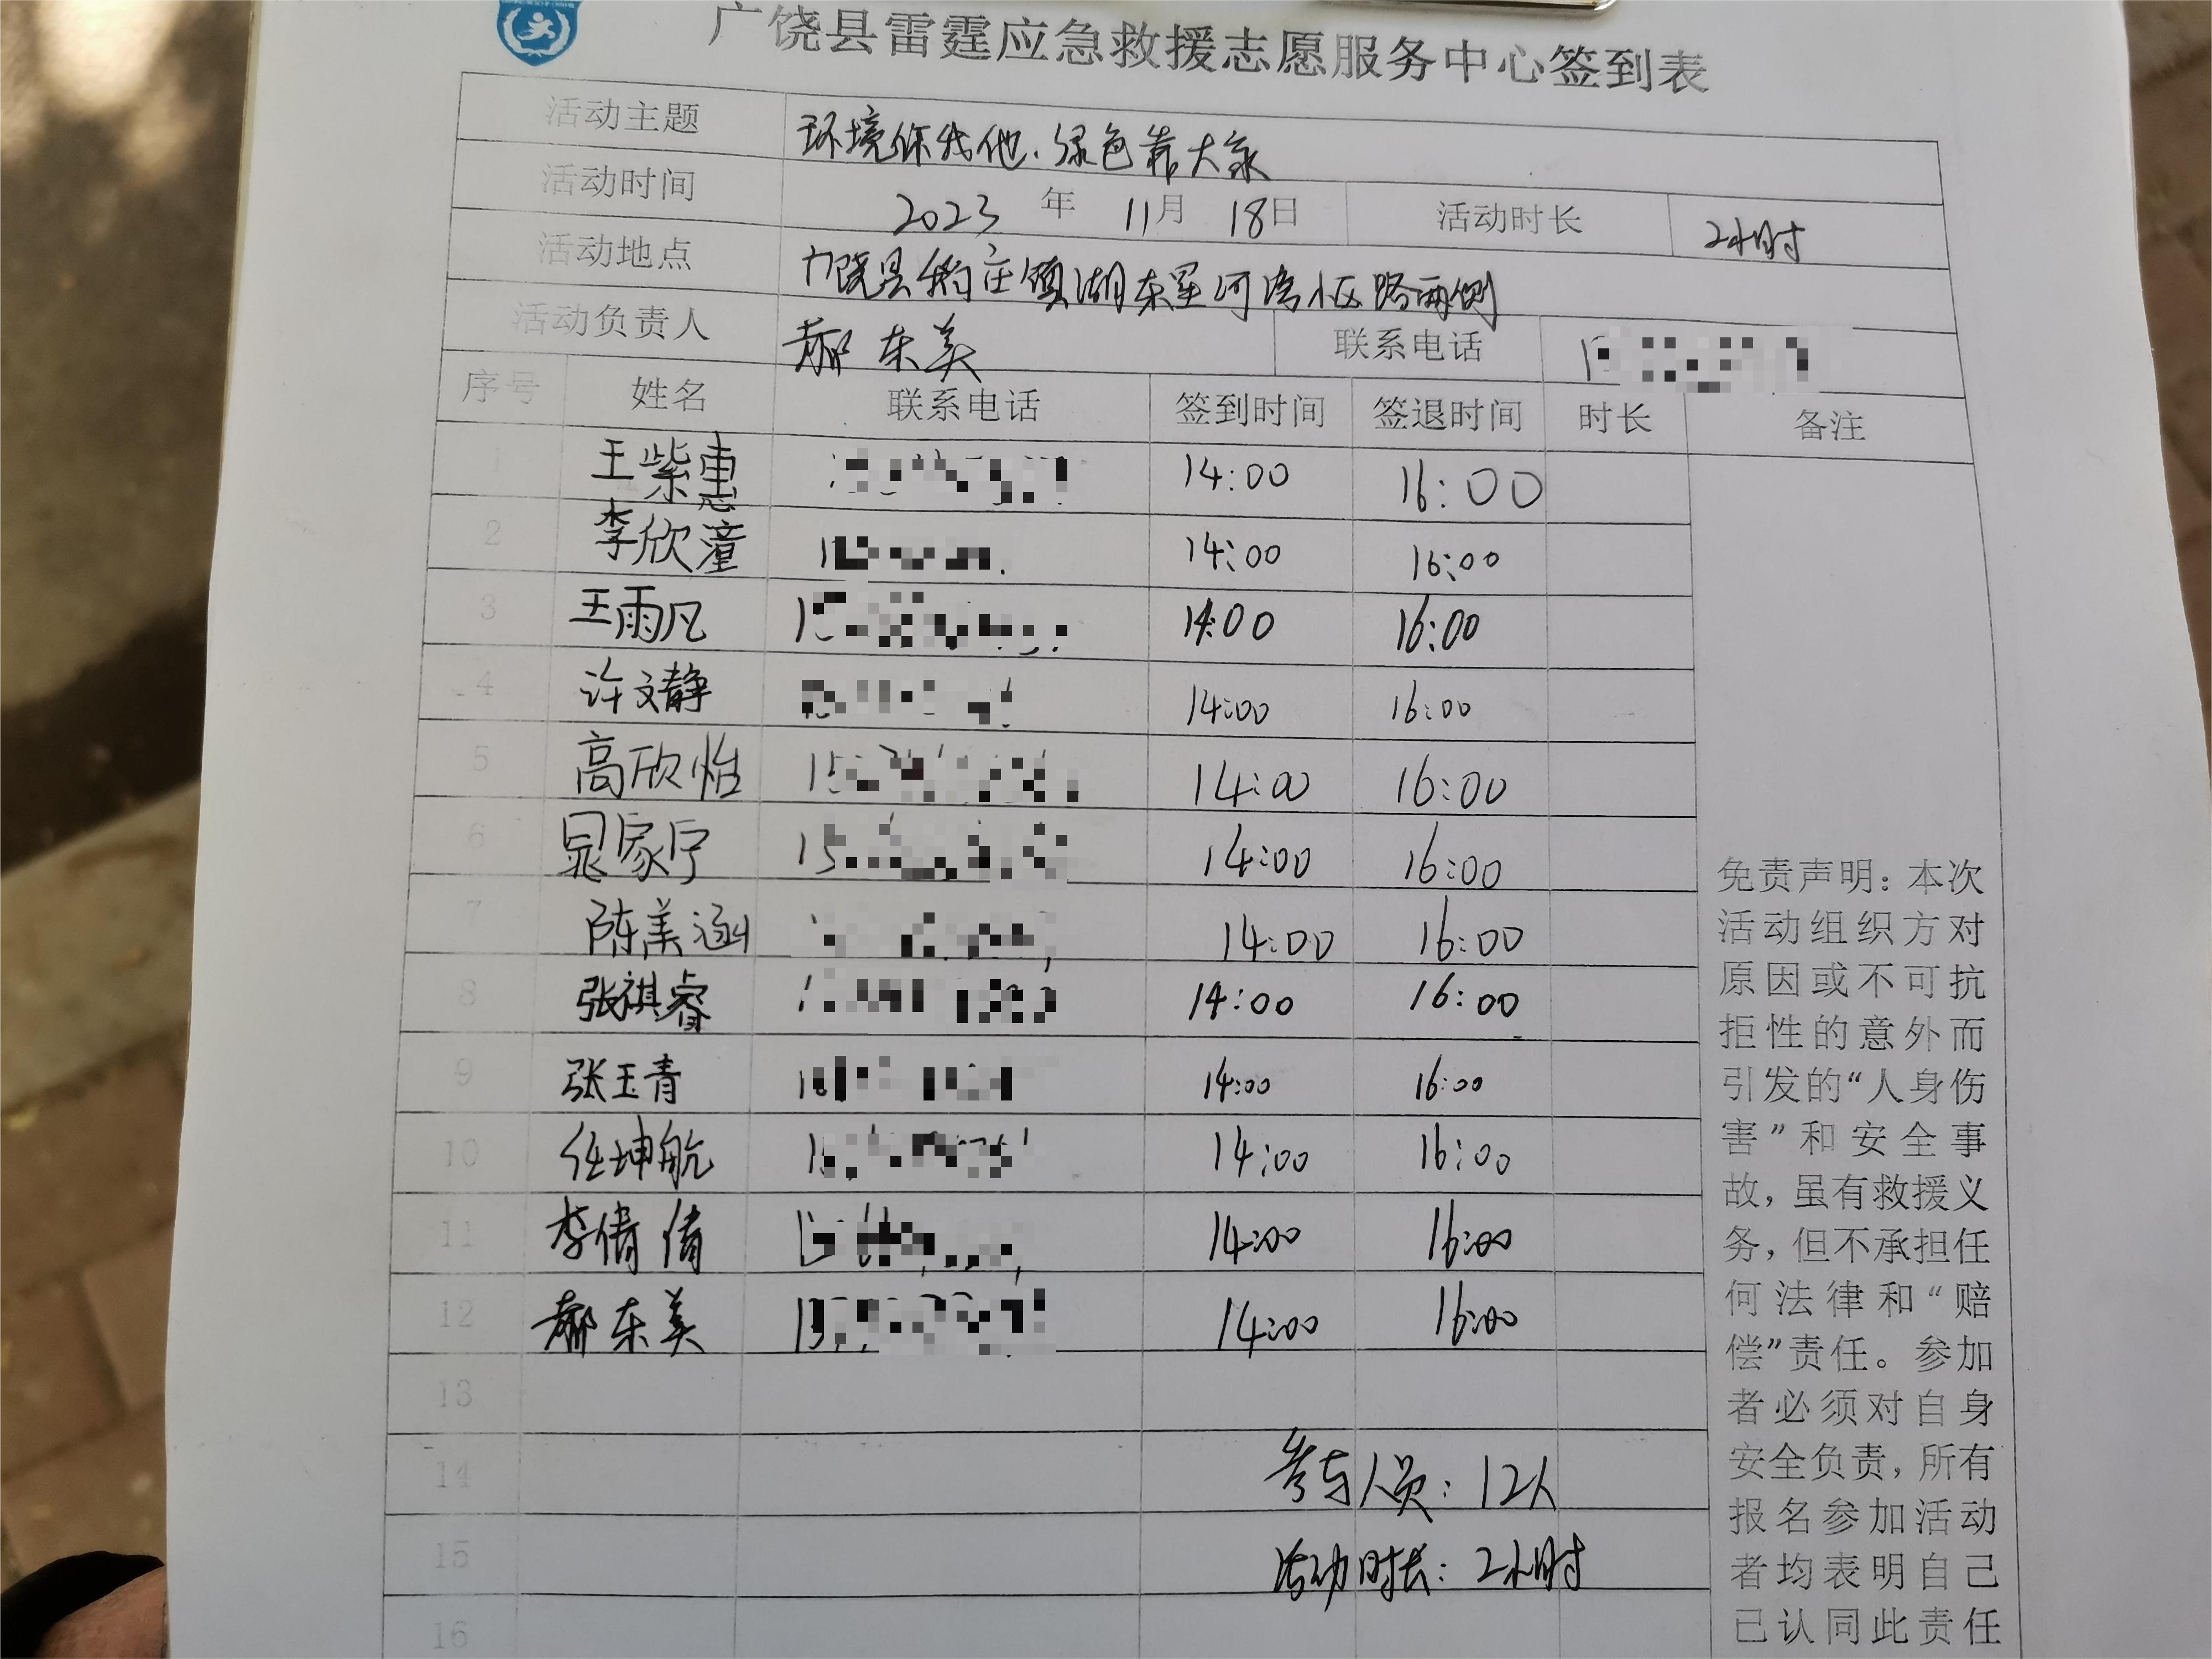 广饶县雷霆应急救援志愿服务中心签到表
活动主题 环境你我他.绿色靠大家
活动时间 2023 年 11月 18日 活动时长 2小时
活动地点 广饶县稻庄镇湖东星河湾小区路两侧
活动负责人 郝东美 联系电话
序号 姓名 联系电话 签到时间 签退时间 时长 备注
1 王紫惠 14:00 16:00
2 李欣潼 14:00 16:00
3 王雨凡 14:00 16:00
4 许文静 14:00 16:00
5 高欣怡 14:00 16:00
6 晁家宁 14:00 16:00
7 陈美涵 14:00 16:00
8 张祺睿 14:00 16:00
9 张玉青 14:00 16:00
10 任坤航 14:00 16:00
11 李倩倩 14:00 16:00
12 郝东美 14:00 16:00
13
14 参与人员:12人
15 活动时长:2小时
16
免责声明:本次
活动组织方对
原因或不可抗
拒性的意外而
引发的“人身伤
害”和安全事
故,虽有救援义
务,但不承担任
何法律和“赔
偿”责任。参加
者必须对自身
安全负责,所有
报名参加活动
者均表明自己
已认同此责任